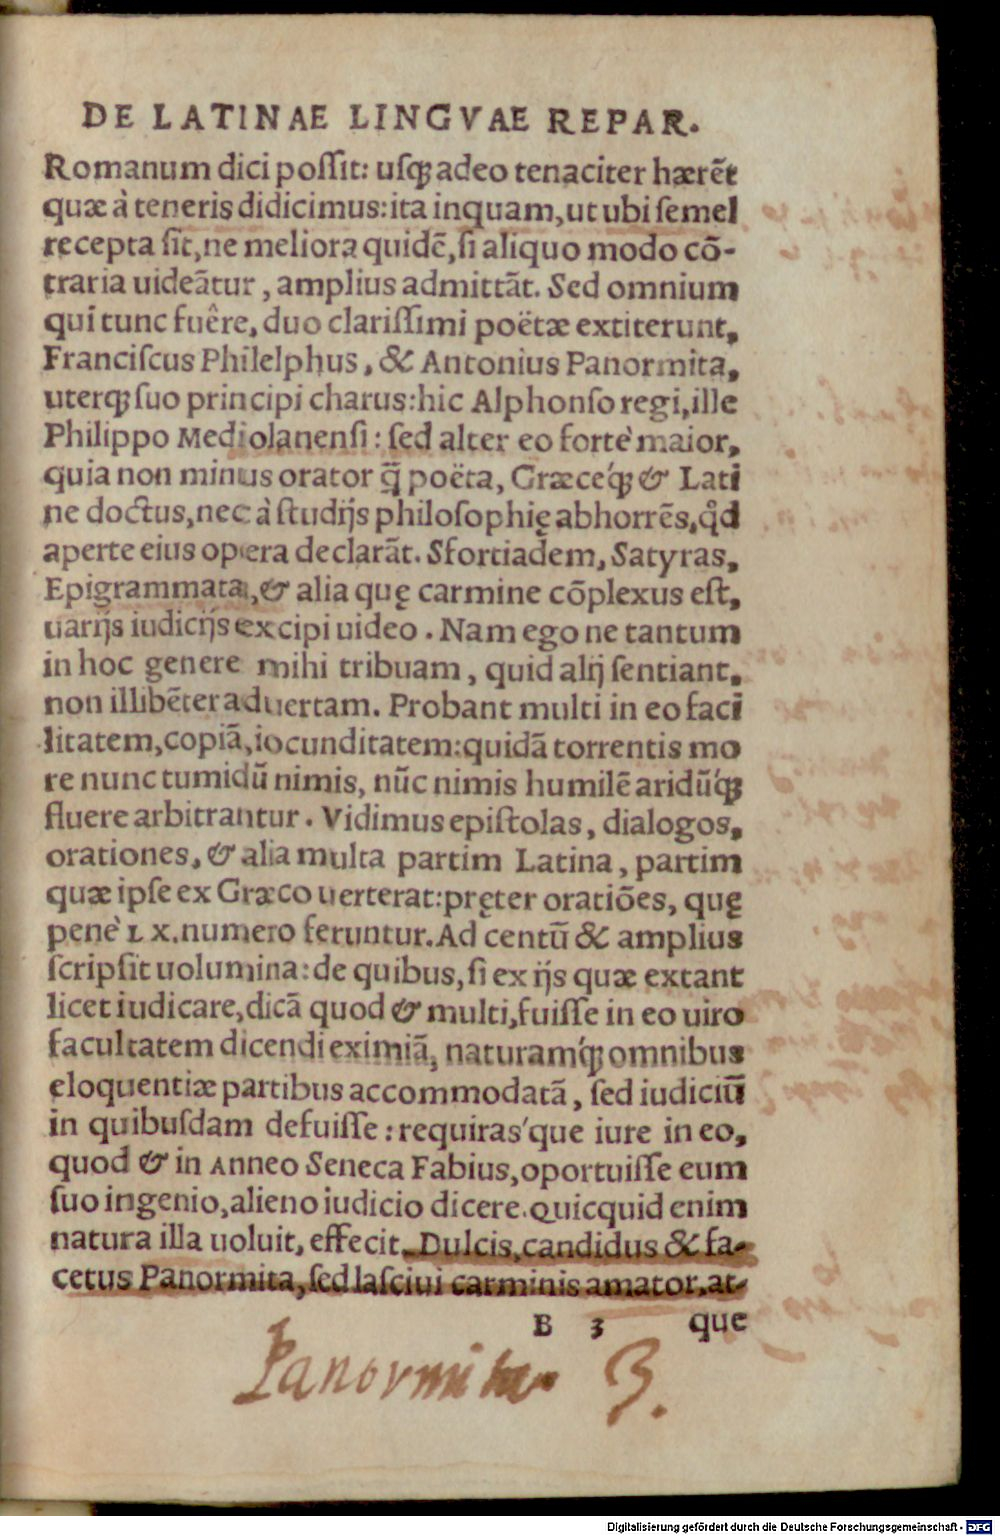 DE LATINAE LINGVAE REPAR.
Romanum dici poſſit: uſq́ꝫ adeo tenaciter hærēt
quæ à teneris didicimus: ita inquam, ut ubi ſemel
recepta ſit, ne meliora quidē, ſi aliquo modo cō-
traria uideātur, amplius admittāt. Sed omnium
qui tunc fuêre, duo clariſſimi poëtæ extiterunt,
Franciſcus Philelphus, & Antonius Panormita,
uterqꝫ ſuo principi charus: hic Alphonſo regi, ille
Philippo Mediolanenſi: ſed alter eo fortè maior,
quia non minus orator q̄̃ poëta, Græceq́ꝫ & Lati
ne doctus, nec à ſtudijs philoſophię abhorrēs, qd̊
aperte eius opera declarāt. Sfortiadem, Satyras,
Epigrammata, & alia quę carmine cōplexus eſt,
uarijs iudicijs excipi uideo. Nam ego ne tantum
in hoc genere mihi tribuam, quid alij ſentiant,
non illibēter aduertam. Probant multi in eo faci
litatem, copiā, iocunditatem: quidā torrentis mo
re nunc tumidū nimis, nūc nimis humilē aridūq́ꝫ
fluere arbitrantur. Vidimus epiſtolas, dialogos,
orationes, & alia multa partim Latina, partim
quæ ipſe ex Græco uerterat: pręter oratiōes, quę
penè LX. numero feruntur. Ad centū & amplius
ſcripſit uolumina: de quibus, ſi ex ijs quæ extant
licet iudicare, dicā quod & multi, fuiſſe in eo uiro
facultatem dicendi eximiā, naturamq́ꝫ omnibus
eloquentiæ partibus accommodatā, ſed iudiciū
in quibuſdam defuiſſe: requiras'que iure in eo,
quod & in Anneo Seneca Fabius, oportuiſſe eum
ſuo ingenio, alieno iudicio dicere. Quicquid enim
natura illa uoluit, effecit. Dulcis, candidus & fa-
cetus Panormita, ſed laſciui carminis amator, at-
B 3 que
Panormita 3.
Digitalisierung gefördert durch die Deutsche Forschungsgemeinschaft - DFG